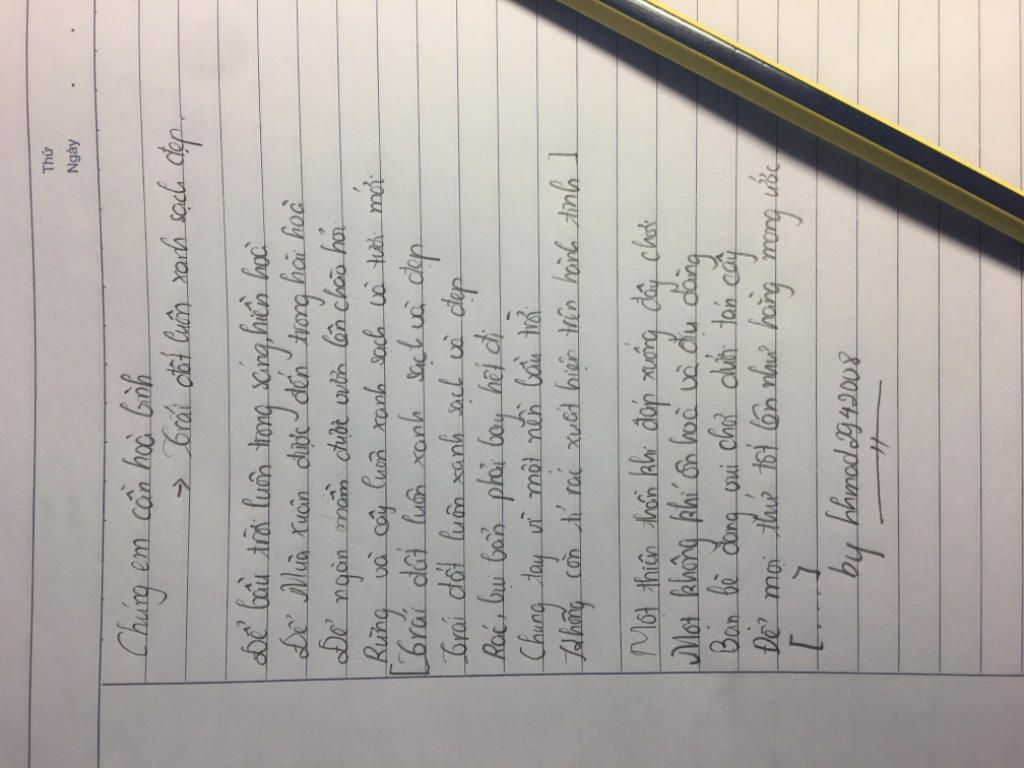 Thứ
Ngày
Chúng em cần hoà bình
→ Trái đất luôn xanh sạch đẹp.
Để bầu trời luôn trong sáng, hiền hoà
Để Mùa xuân được đến trong hài hoà
Để ngàn mầm được vươn lên chào hỏi
Rừng và cây luôn xanh sạch và tươi mới
[Trái đất luôn xanh sạch và đẹp
Trái đất luôn xanh sạch và đẹp
Rác, bụi bẩn phải bay hết đi
Chung tay vì một nền bầu trời
Không còn tí rác xuất hiện trên hành tinh]
Một thiên thần khi đáp xuống đây chơi
Một không khí ôn hoà và dịu dàng
Bạn bè đang vui chơi dưới tán cây
Để mọi thứ tốt lên như hằng mong ước
[.....]
by hnmod2942008